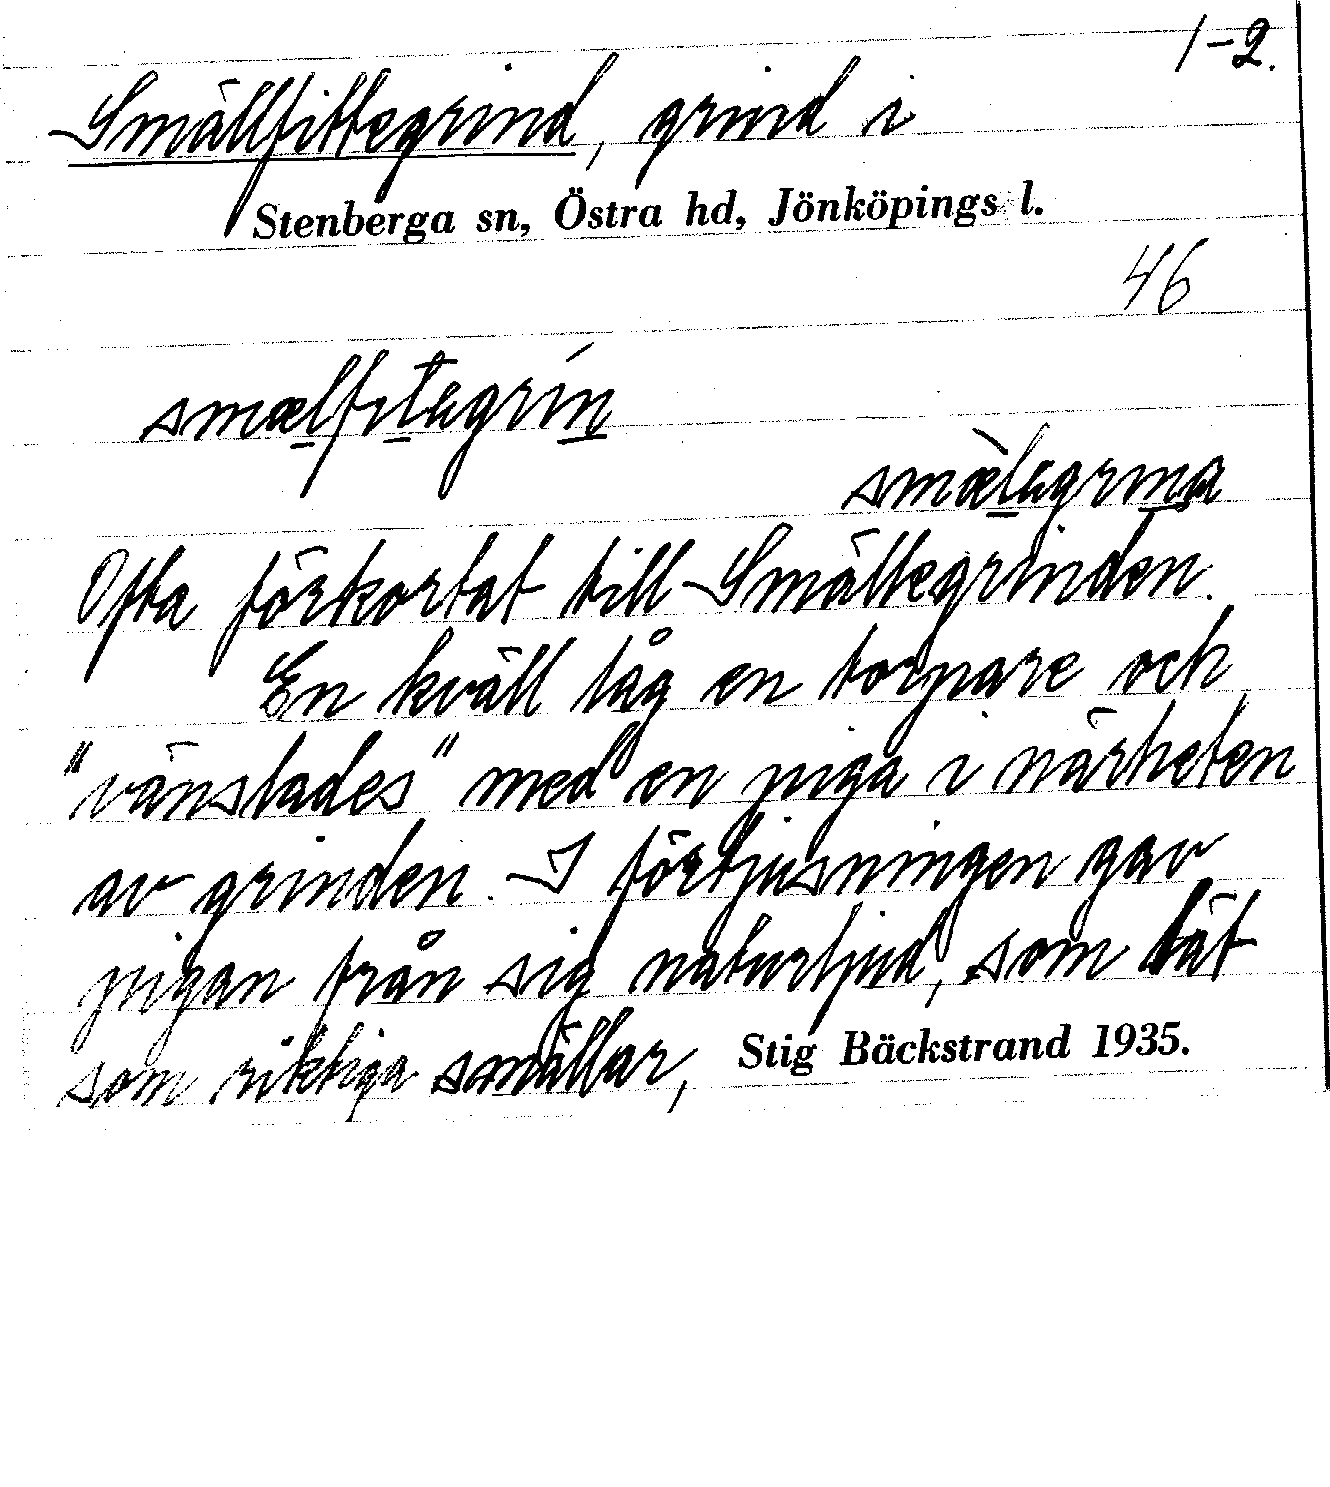 1-2.
Smällfittegrind, grind i
Stenberga sn, Östra hd, Jönköpings l.
46
smælfitagrín
smælagrina
Ofta förkortat till Smällegrinden.
En kväll låg en torpare och
"vänslades" med en piga i närheten
av grinden. I förtjusningen gav
pigan från sig naturljud, som lät
som riktiga smällar,
Stig Bäckstrand 1935.